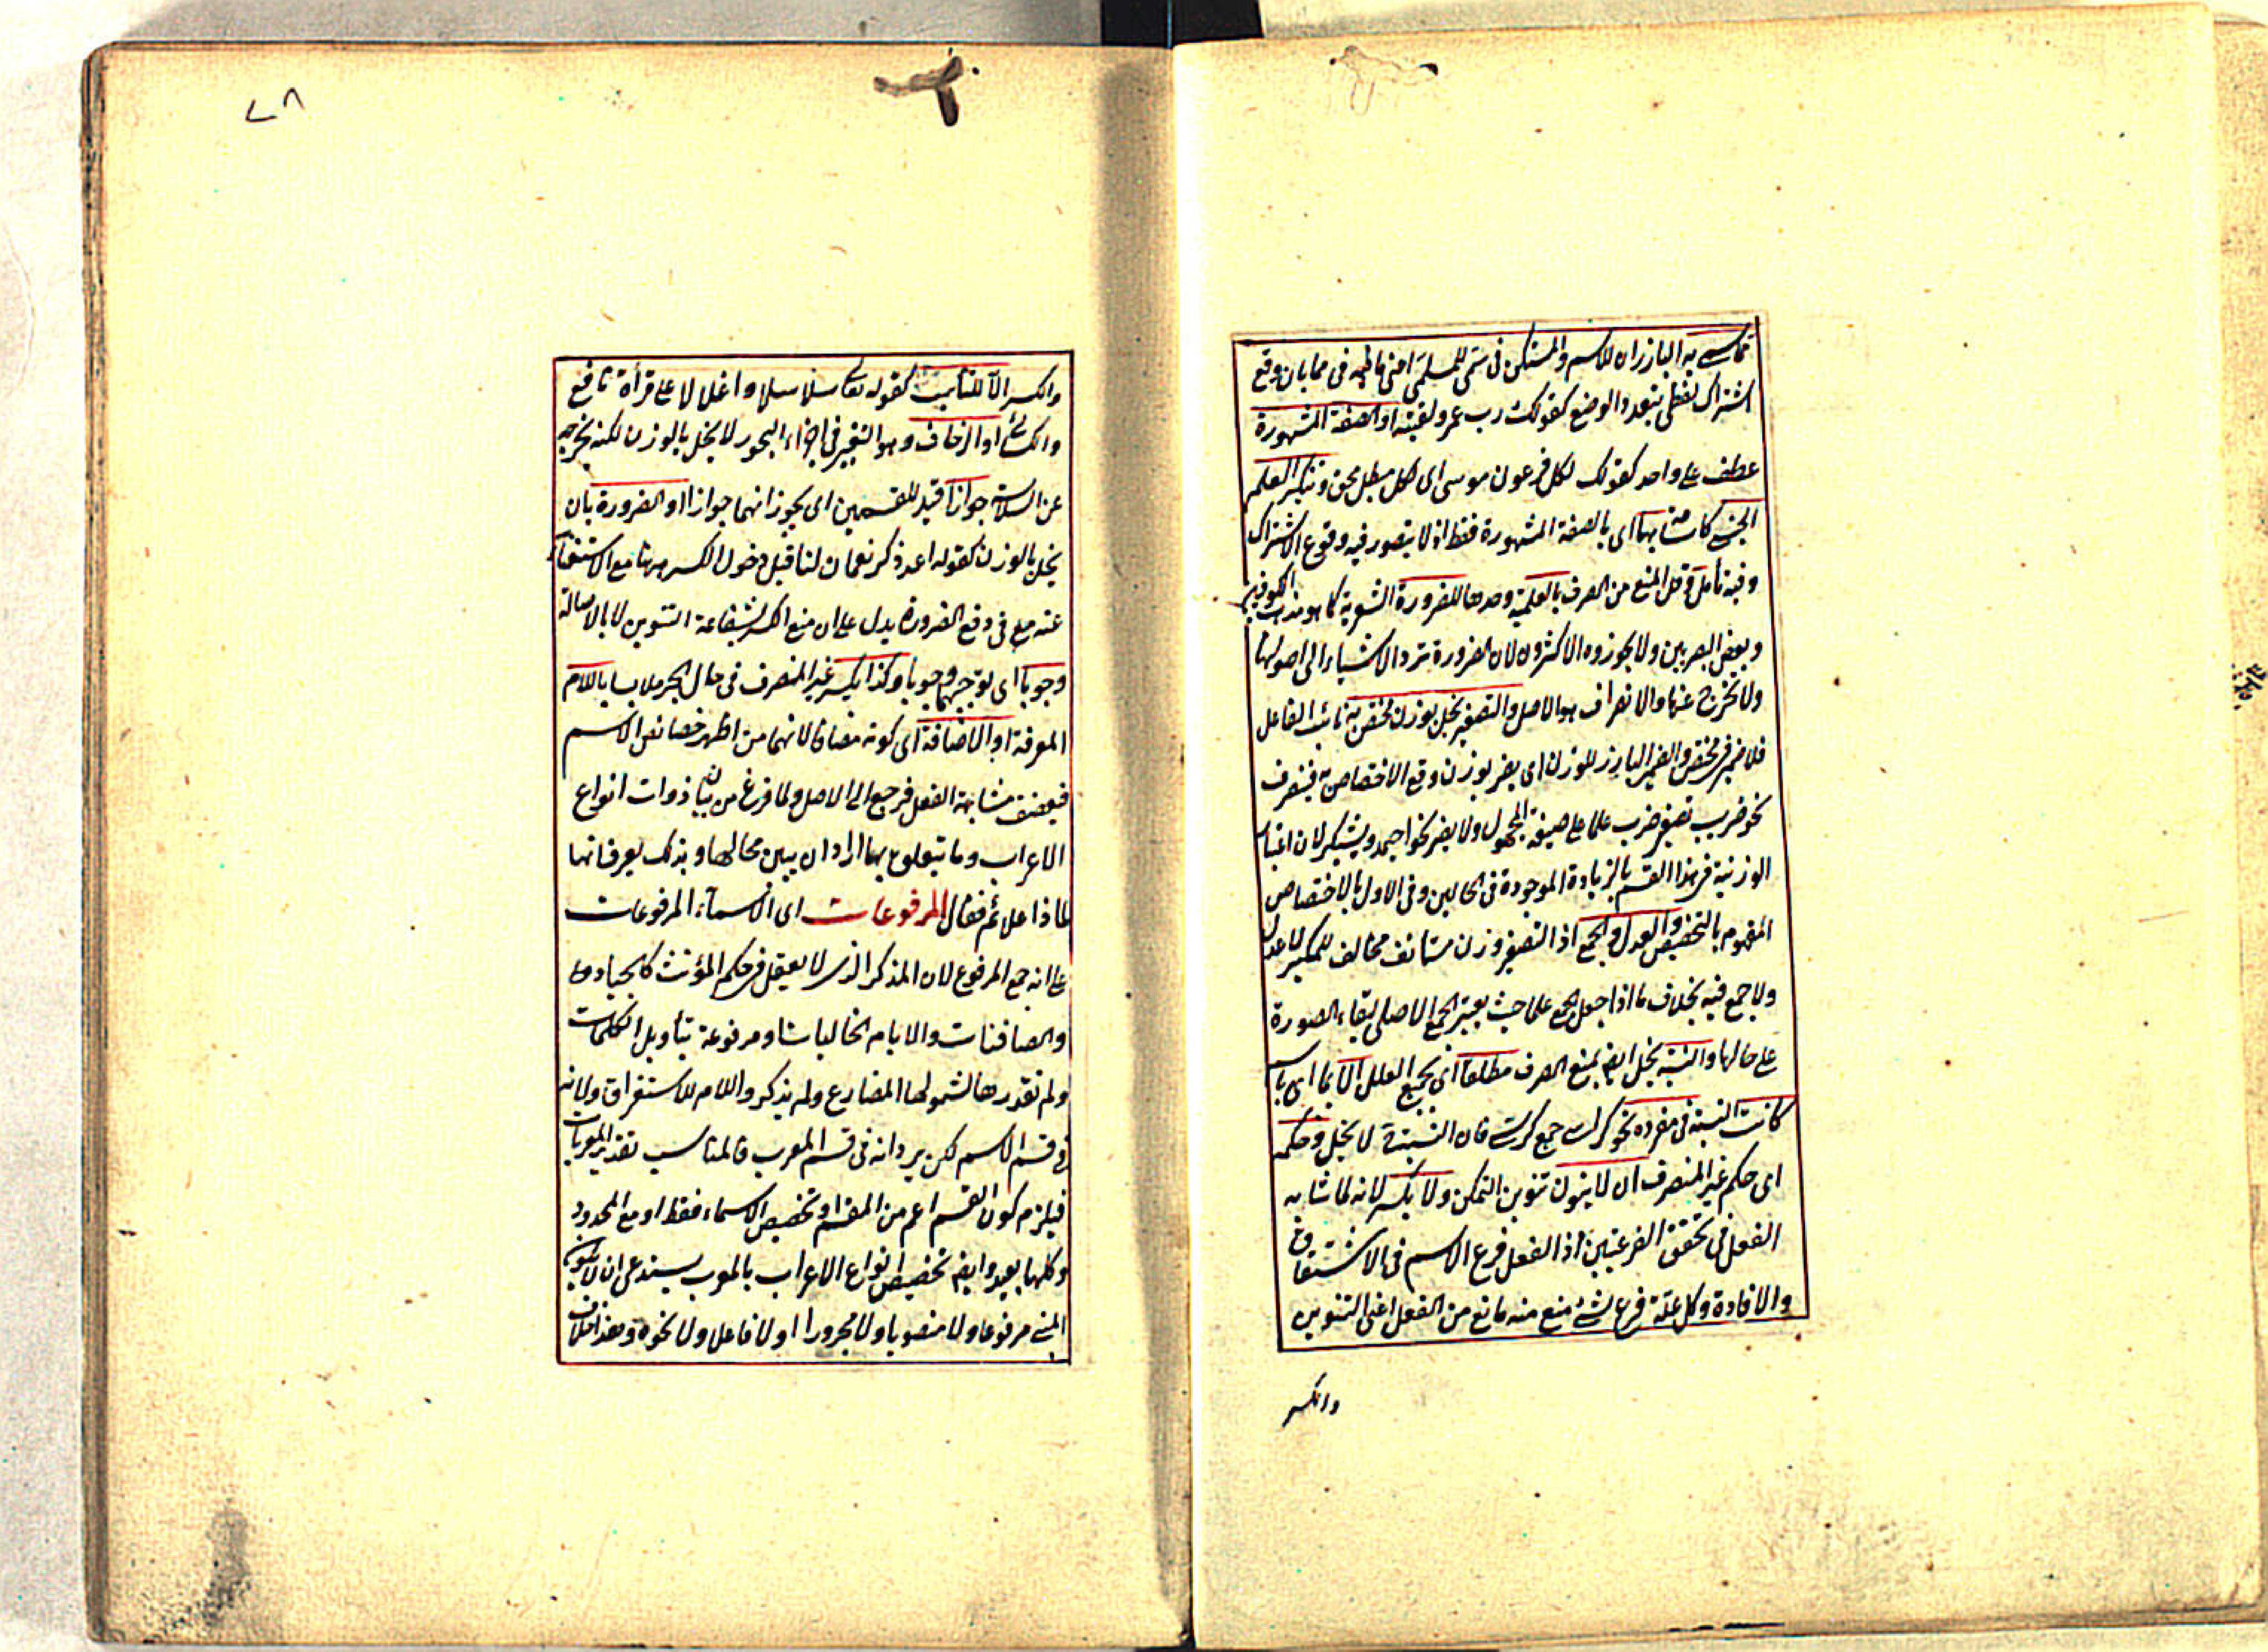 اشتراك لفظى بتعدد الوضع كقولك رب عمرو لقيته او الصفة المشهورة
عطف على واحد كقولك لكل فرعون موسى اى لكل مبطل محق وتنكير العلم
الجنسى كاسامة بها اى بالصفة المشهورة فقط اذ لا يتصور فيه وقوع الاشتراك
وفيه تأمل قيل المنع من الصرف بالعلمية وحدها للضرورة الشعرية كما هو مذهب الكوفيين
وبعض البصريين ولا يجوزوه الاكثرون لان الضرورة ترد الاشياء الى اصولها
ولا تخرج عنها والانصراف هو الاصل والتصغير يخل بوزن مختص به نائب الفاعل
فلا ضمير فى مختص والضمير البارز للوزن اى يضر بوزن وقع الاختصاص به فينصرف
نحو ضريب تصغير ضرب علما على صيغة المجهول ولا يضر نحو احيمد ويشيكر لان اعتبار
الوزنية فى هذا القسم بالزيادة الموجودة فى الحالين وفى الاول بالاختصاص
المفهوم بالتخصيص والعدل والجمع اذ التصغير وزن مستأنف مخالف للمكبر لا عدل
ولا جمع فيه بخلاف ما اذا جعل الجمع علما حيث يعتبر الجمع الاصلى لبقاء الصورة
على حالها والنسبة يخل ايضا بمنع الصرف مطلقا اى بجميع العلل الا بما اى بباب
كانت النسبة فى مفرده نحو كراسى جمع كرسى فان النسبة لا يخل وحكمه
اى حكم غير المنصرف ان لا ينون تنوين التمكن ولا يكسر لانه لما شابه
الفعل فى تحقق الفرعيتين اذ الفعل فرع الاسم فى الاشتقاق
والافادة وكل علة فرع لشئ منع منه ما منع من الفعل اعنى التنوين
والكسر
٧٨
والكسر الا للتناسب كقوله تعالى سلاسلا واغلالا على قرأة نافع
والكسائى او الزحاف وهو التغير فى اجزاء البحور لا يخل بالوزن لكنه يخرجه
عن السلاسة جوازا قيد للقسمين اى يجوز انهما جوازا او الضرورة بان
يخل بالوزن كقوله اعد ذكر نعمان لنا قيل دخول الكسر ههنا مع الاستغناء
عنه مع فى دفع الضرورة يدل على ان منع الكسر لشفاعة التنوين لا بالاصالة
وجوبا اى يوجبها وجوبا وكذا يكسر غير المنصرف فى حال الجر ملابسا باللام
المعرفة او الاضافة اى كونه مضافا لانهما من اظهر خصائص الاسم
فيضعف مشابهة الفعل فرجع الى الاصل ولما فرغ من بيان ذوات انواع
الاعراب وما يتعلق بها اراد ان يبين محالها وبذلك يعرف انها
لماذا علائم فقال المرفوعات اى الاسماء المرفوعات
على انه جمع المرفوع لان المذكر الذى لا يعقل فى حكم المؤنث كالجياد
والصافنات والايام الخاليات او مرفوعة بتأويل الكلمات
ولم نقدرها لشمولها المضارع ولم يذكر واللام للاستغراق ولانه
فى قسم الاسم لكن يرد انه فى قسم المعرب فالمناسب تقدير المعربات
فيلزم كون القسم اعم من المقسم او تخصيص الاسماء فقط او مع المحدود
وكلها بعيد وايضا تخصيص انواع الاعراب بالمعرب يستدعى ان لا يكون
المبنى مرفوعا ولا منصوبا ولا مجرورا اولا فاعلا ولا نحوه وهذا خلاف